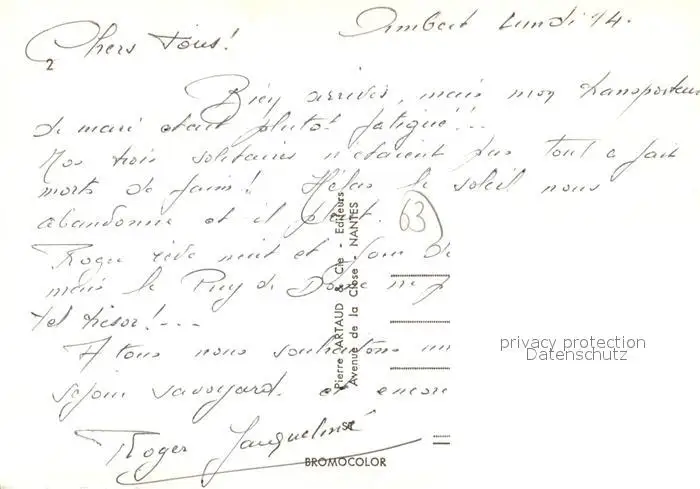 Ambert Lundi 14.
Chers tous!
2
Bien arrivés, mais mon transporteur
de mari était plutôt fatigué!...
Nos trois solitaires n'étaient pas tout à fait
morts de faim! Hélas le soleil nous
abandonne et il pleut.
63
Roger rêve nuit et jour de
mais le Puy de Dôme ne
tel trésor!---
A tous nous souhaitons un
séjour savoyard. et encore
Roger Jacqueline
Pierre ARTAUD & Cie - Editeurs
Avenue de la Close - NANTES
BROMOCOLOR
privacy protection
Datenschutz